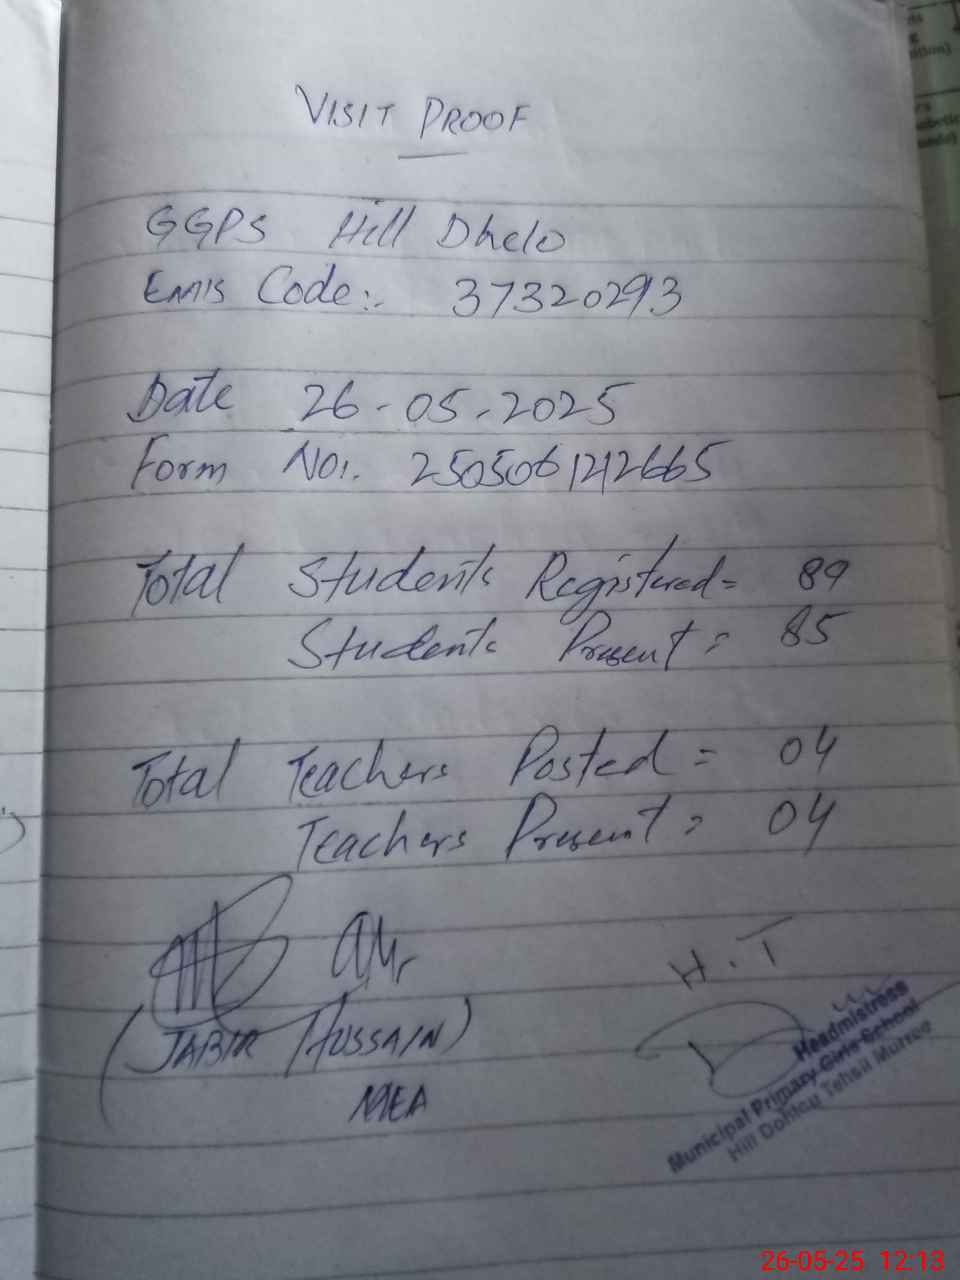 VISIT PROOF
GGPS Hill Dhelo
EMIS Code:. 37320293
Date 26-05-2025
Form No:. 2505061212665
Total Students Registered = 89
Students Present = 85
Total Teachers Posted = 04
Teachers Present = 04
(JABIR HUSSAIN)
MEA
H.T
Headmistress
Municipal Primary Girls School
Hill Tehsil Murree
26-05-25 12:13